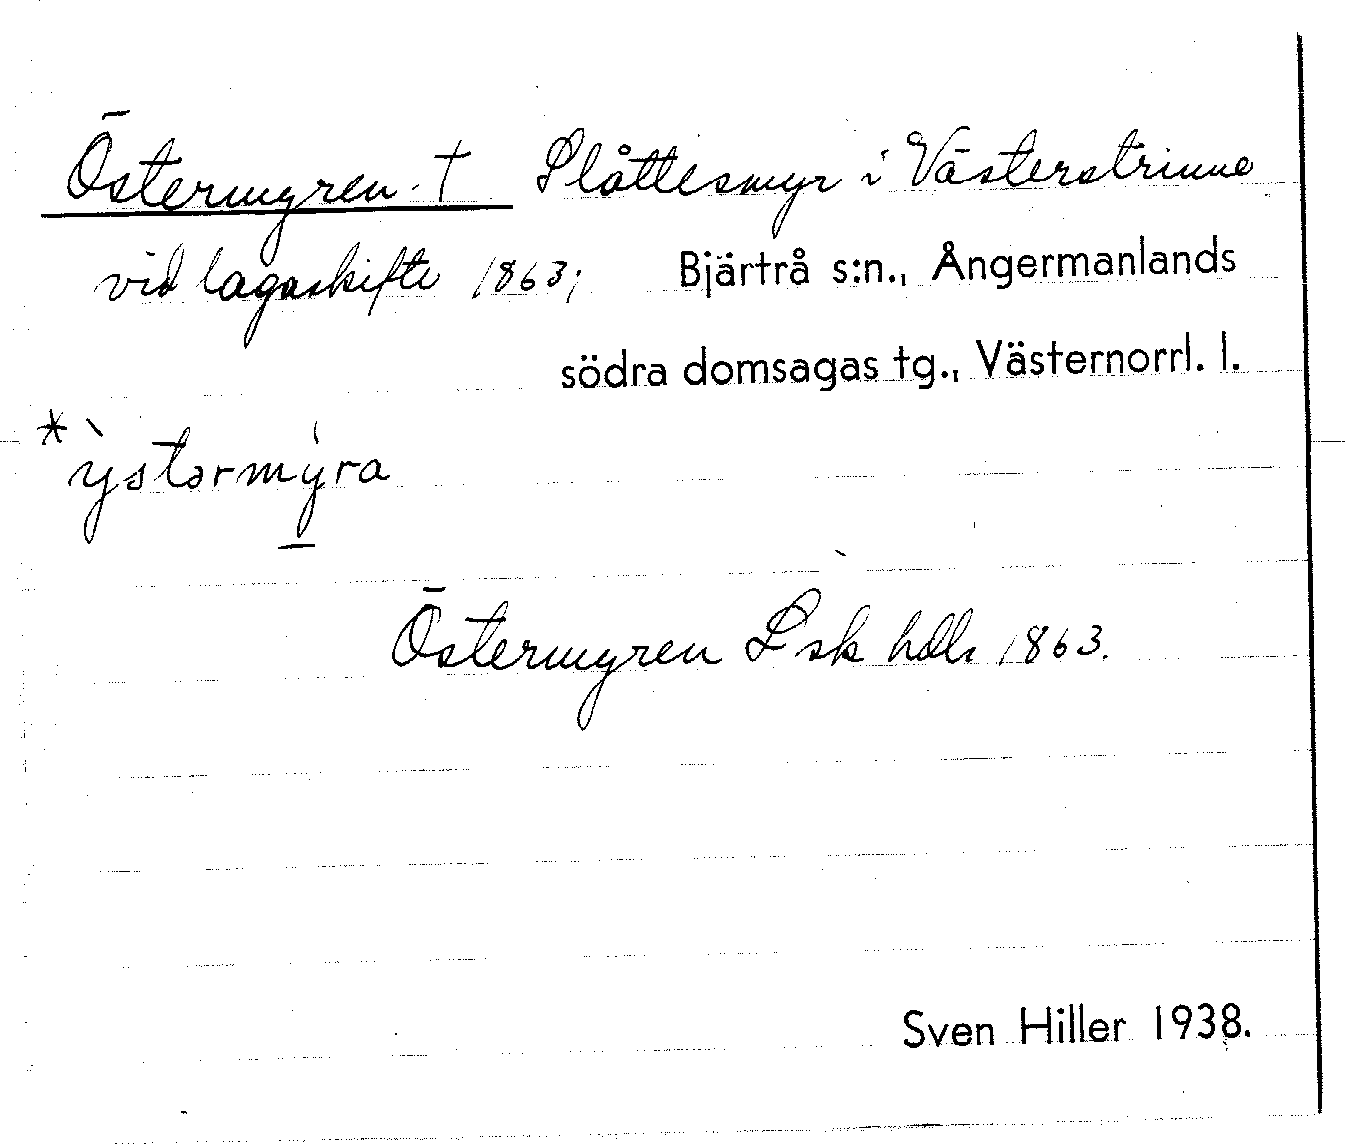 Östermyren † Slåttesmyr i Västerstrinne
vid lagaskifte 1863; Bjärtrå s:n., Ångermanlands
södra domsagas tg., Västernorrl. l.
*ỳstərmýra
Östermyren Lsk hdl. 1863.
Sven Hiller 1938.